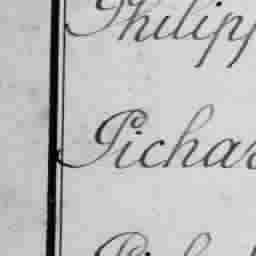 Philipp
Pichar